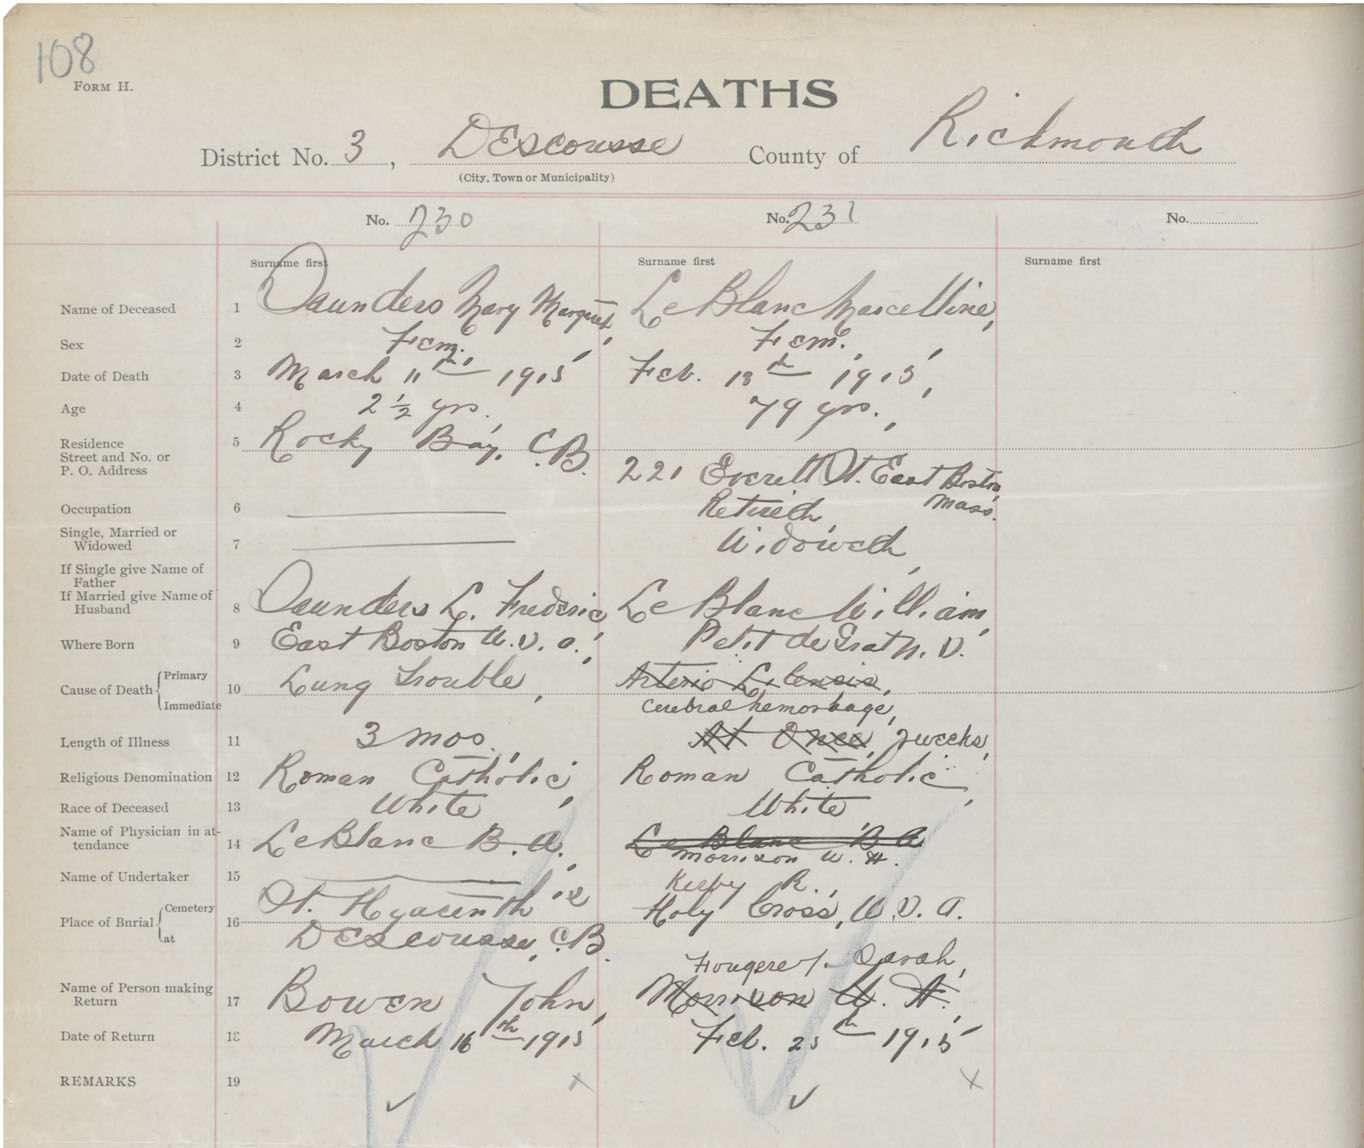 108
FORM H.
DEATHS
District No. 3, DEscousse County of Richmond
(City, Town or Municipality)
No. 230 No. 231 No.
Surname first Surname first Surname first
Name of Deceased 1 Saunders Mary Margret, LeBlanc Marcelline,
Sex 2 Fem., Fem.,
Date of Death 3 March 11th 1915 Feb. 18th 1915,
Age 4 2½ yrs. 79 yrs.,
Residence 5 Rocky Bay, C.B.
Street and No. or
P. O. Address 221 Everett St. East Boston
Mass.
Occupation 6 Retired
Single, Married or
Widowed 7 Widowed,
If Single give Name of
Father
If Married give Name of
Husband 8 Saunders L. Frederic, LeBlanc William,
Where Born 9 East Boston U.S.A., Petit de Grat N.S.
Cause of Death Primary 10 Lung Trouble, Arterio
Immediate Cerebral hemorhage,
Length of Illness 11 3 mos., At Once, 2 weeks,
Religious Denomination 12 Roman Catholic, Roman Catholic,
Race of Deceased 13 White White
Name of Physician in at-
tendance 14 LeBlanc B. A., LeBlanc B A
Morrison W. H.
Name of Undertaker 15 Kirby R.,
Place of Burial Cemetery 16 St. Hyacinth's Holy Cross, U.S.A.
at DEscousse, C.B.
Fougere Sarah,
Name of Person making
Return 17 Bowen John, Morrison W. H.,
Date of Return 18 March 16th 1915 Feb. 25th 1915
REMARKS 19